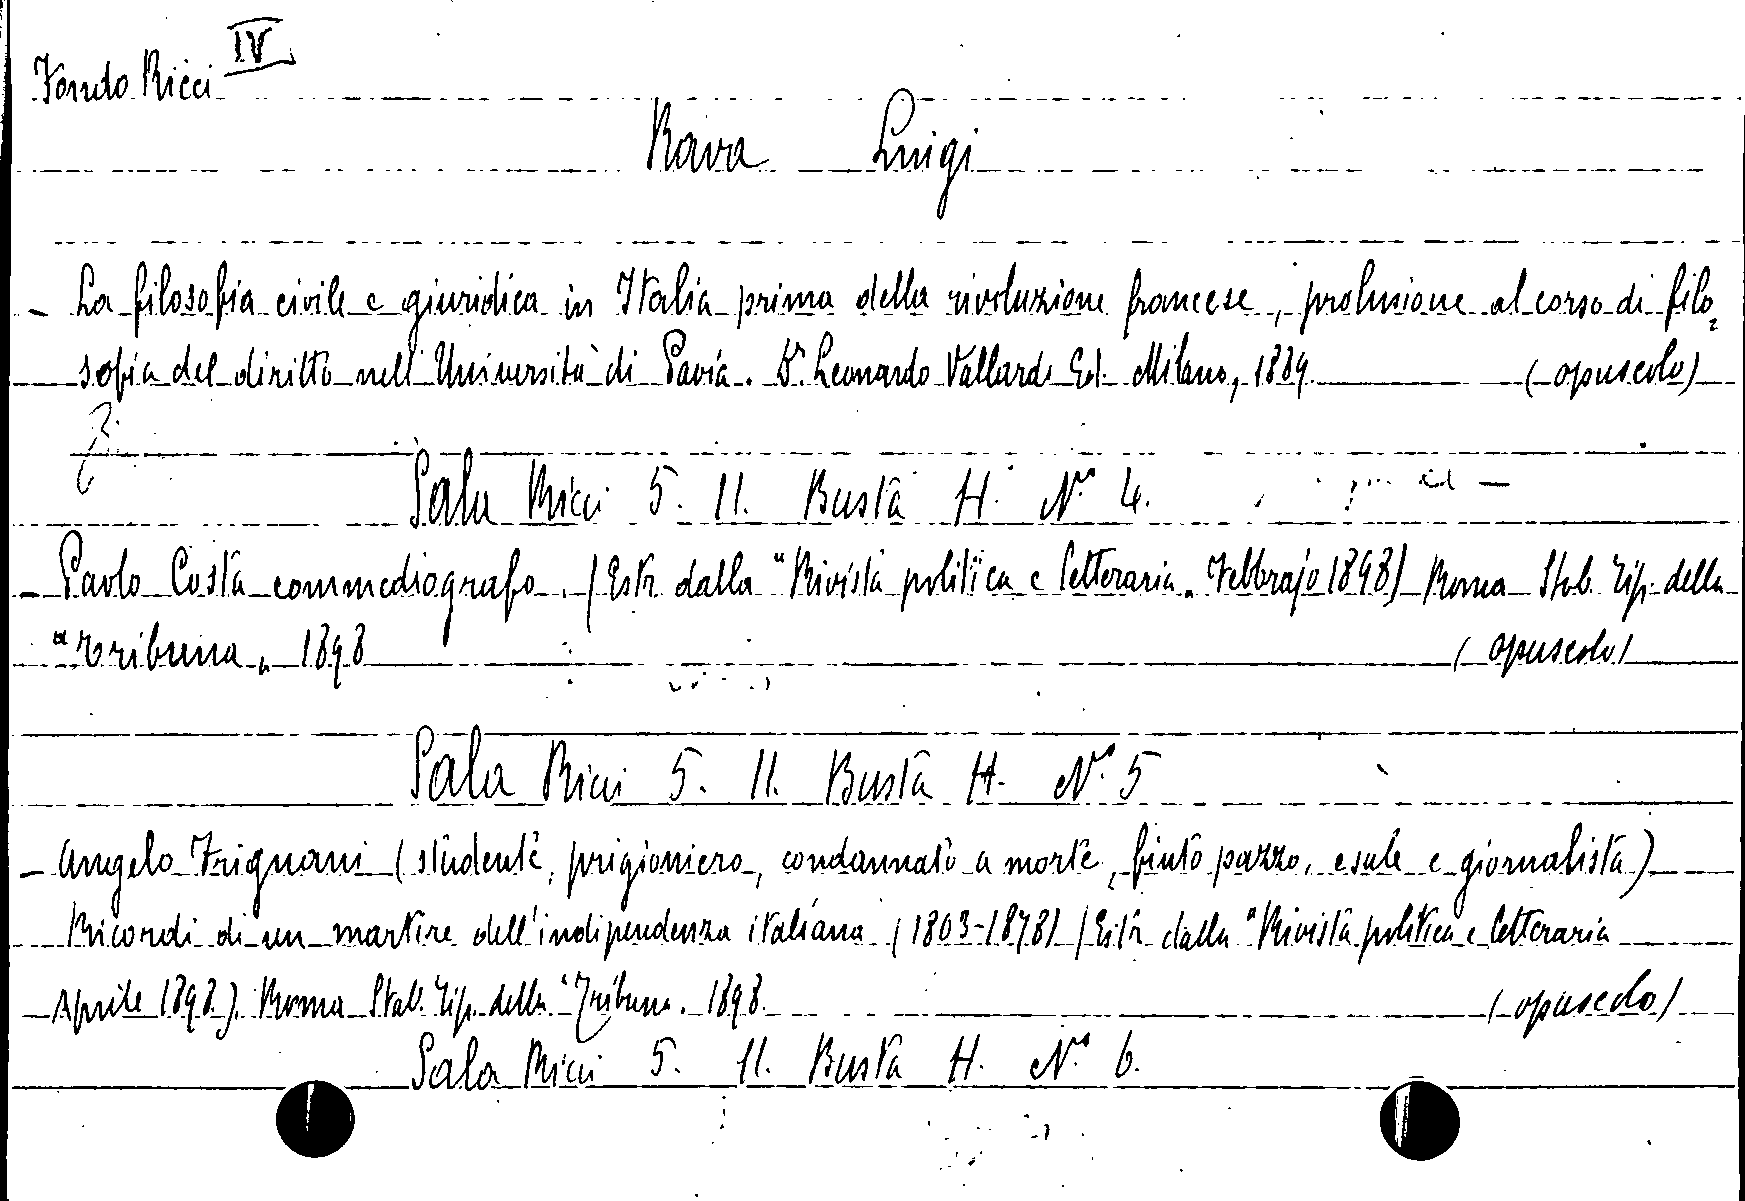 Fondo Ricci IV
Rava Luigi
- La filosofia civile e giuridica in Italia prima della rivoluzione francese, prolusione al corso di filo=
sofia del diritto nell'Università di Pavia. Dr Leonardo Vallardi Ed. Milano, 1889. (opuscolo)
Sala Ricci 5. 11. Busta H. N.° 4.
- Paolo Costa commediografo. (Estr. dalla "Rivista politica e letteraria" Febbrajo 1898) Roma Stab. Tip. della
"Tribuna" 1898 (opuscolo)
Sala Ricci 5. 11. Busta H. N.° 5
- Angelo Frignani (studente, prigioniero, condannato a morte, finto pazzo, esule e giornalista)
Ricordi di un martire dell'indipendenza italiana (1803-1878) (Estr. dalla "Rivista politica e letteraria
Aprile 1898). Roma Stab. Tip. della "Tribuna" 1898. (opuscolo)
Sala Ricci 5. 11. Busta H. N.° 6.